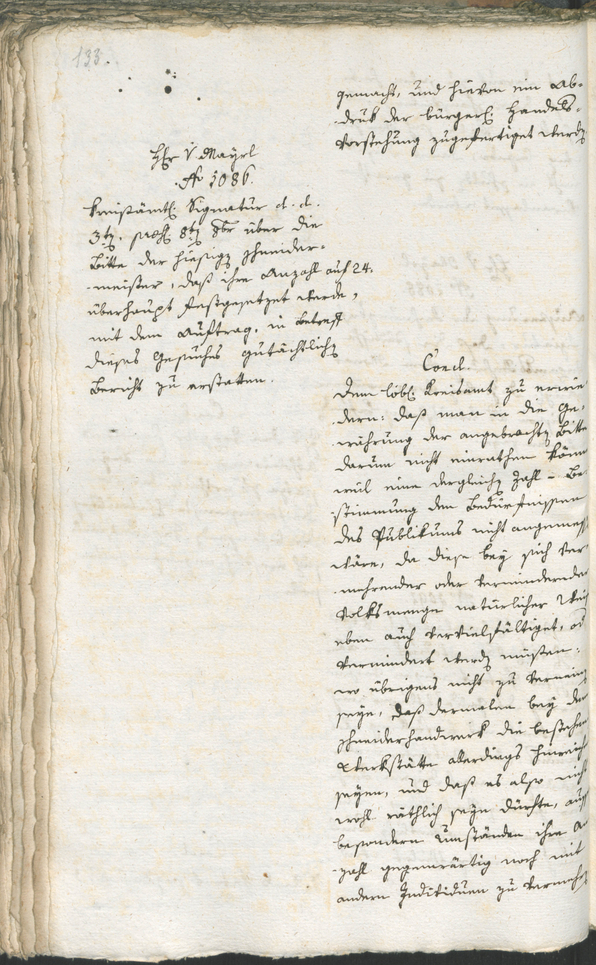 133.
gemacht, und hievon ein Ab-
druk der bürgerl. Handels-
Vorstehung zugefertiget werde
Hr v Mayrl
No 1086.
Kreisämtl. Signatur d. d.
3ten, praes. 8ten 8br über die
Bitte der hiesigen Schneider-
meister, daß ihre Anzahl auf 24.
überhaupt festgesetzet werde,
mit dem Auftrag, in Betreff
dieses Gesuches gutächtlichen
Bericht zu erstatten.
Concl.
Dem löbl. Kreisamt zu erwie
dern: daß man in die Ge-
währung der angebrachten Bitte
darum nicht einrathen könne
weil eine dergleichen Zahl-Be
stimmung den Bedürfnissen
des Publikums nicht angemess
wäre, da diese bey sich ver
mehrender oder vermindernder
Volksmenge natürlicher Weise
eben auch vervielfältiget, od
vermindert werden müßten;
wo übrigens nicht zu verneinen
seye, daß dermalen bey dem
Schneiderhandwerk die bestehen
Werkstätte allerdings hinreich
seyen, und daß es also nicht
wohl räthlich seyn dürfte, ausser
besondern Umständen ihre An
zahl gegenwärtig noch mit
andern Individuen zu vermehren